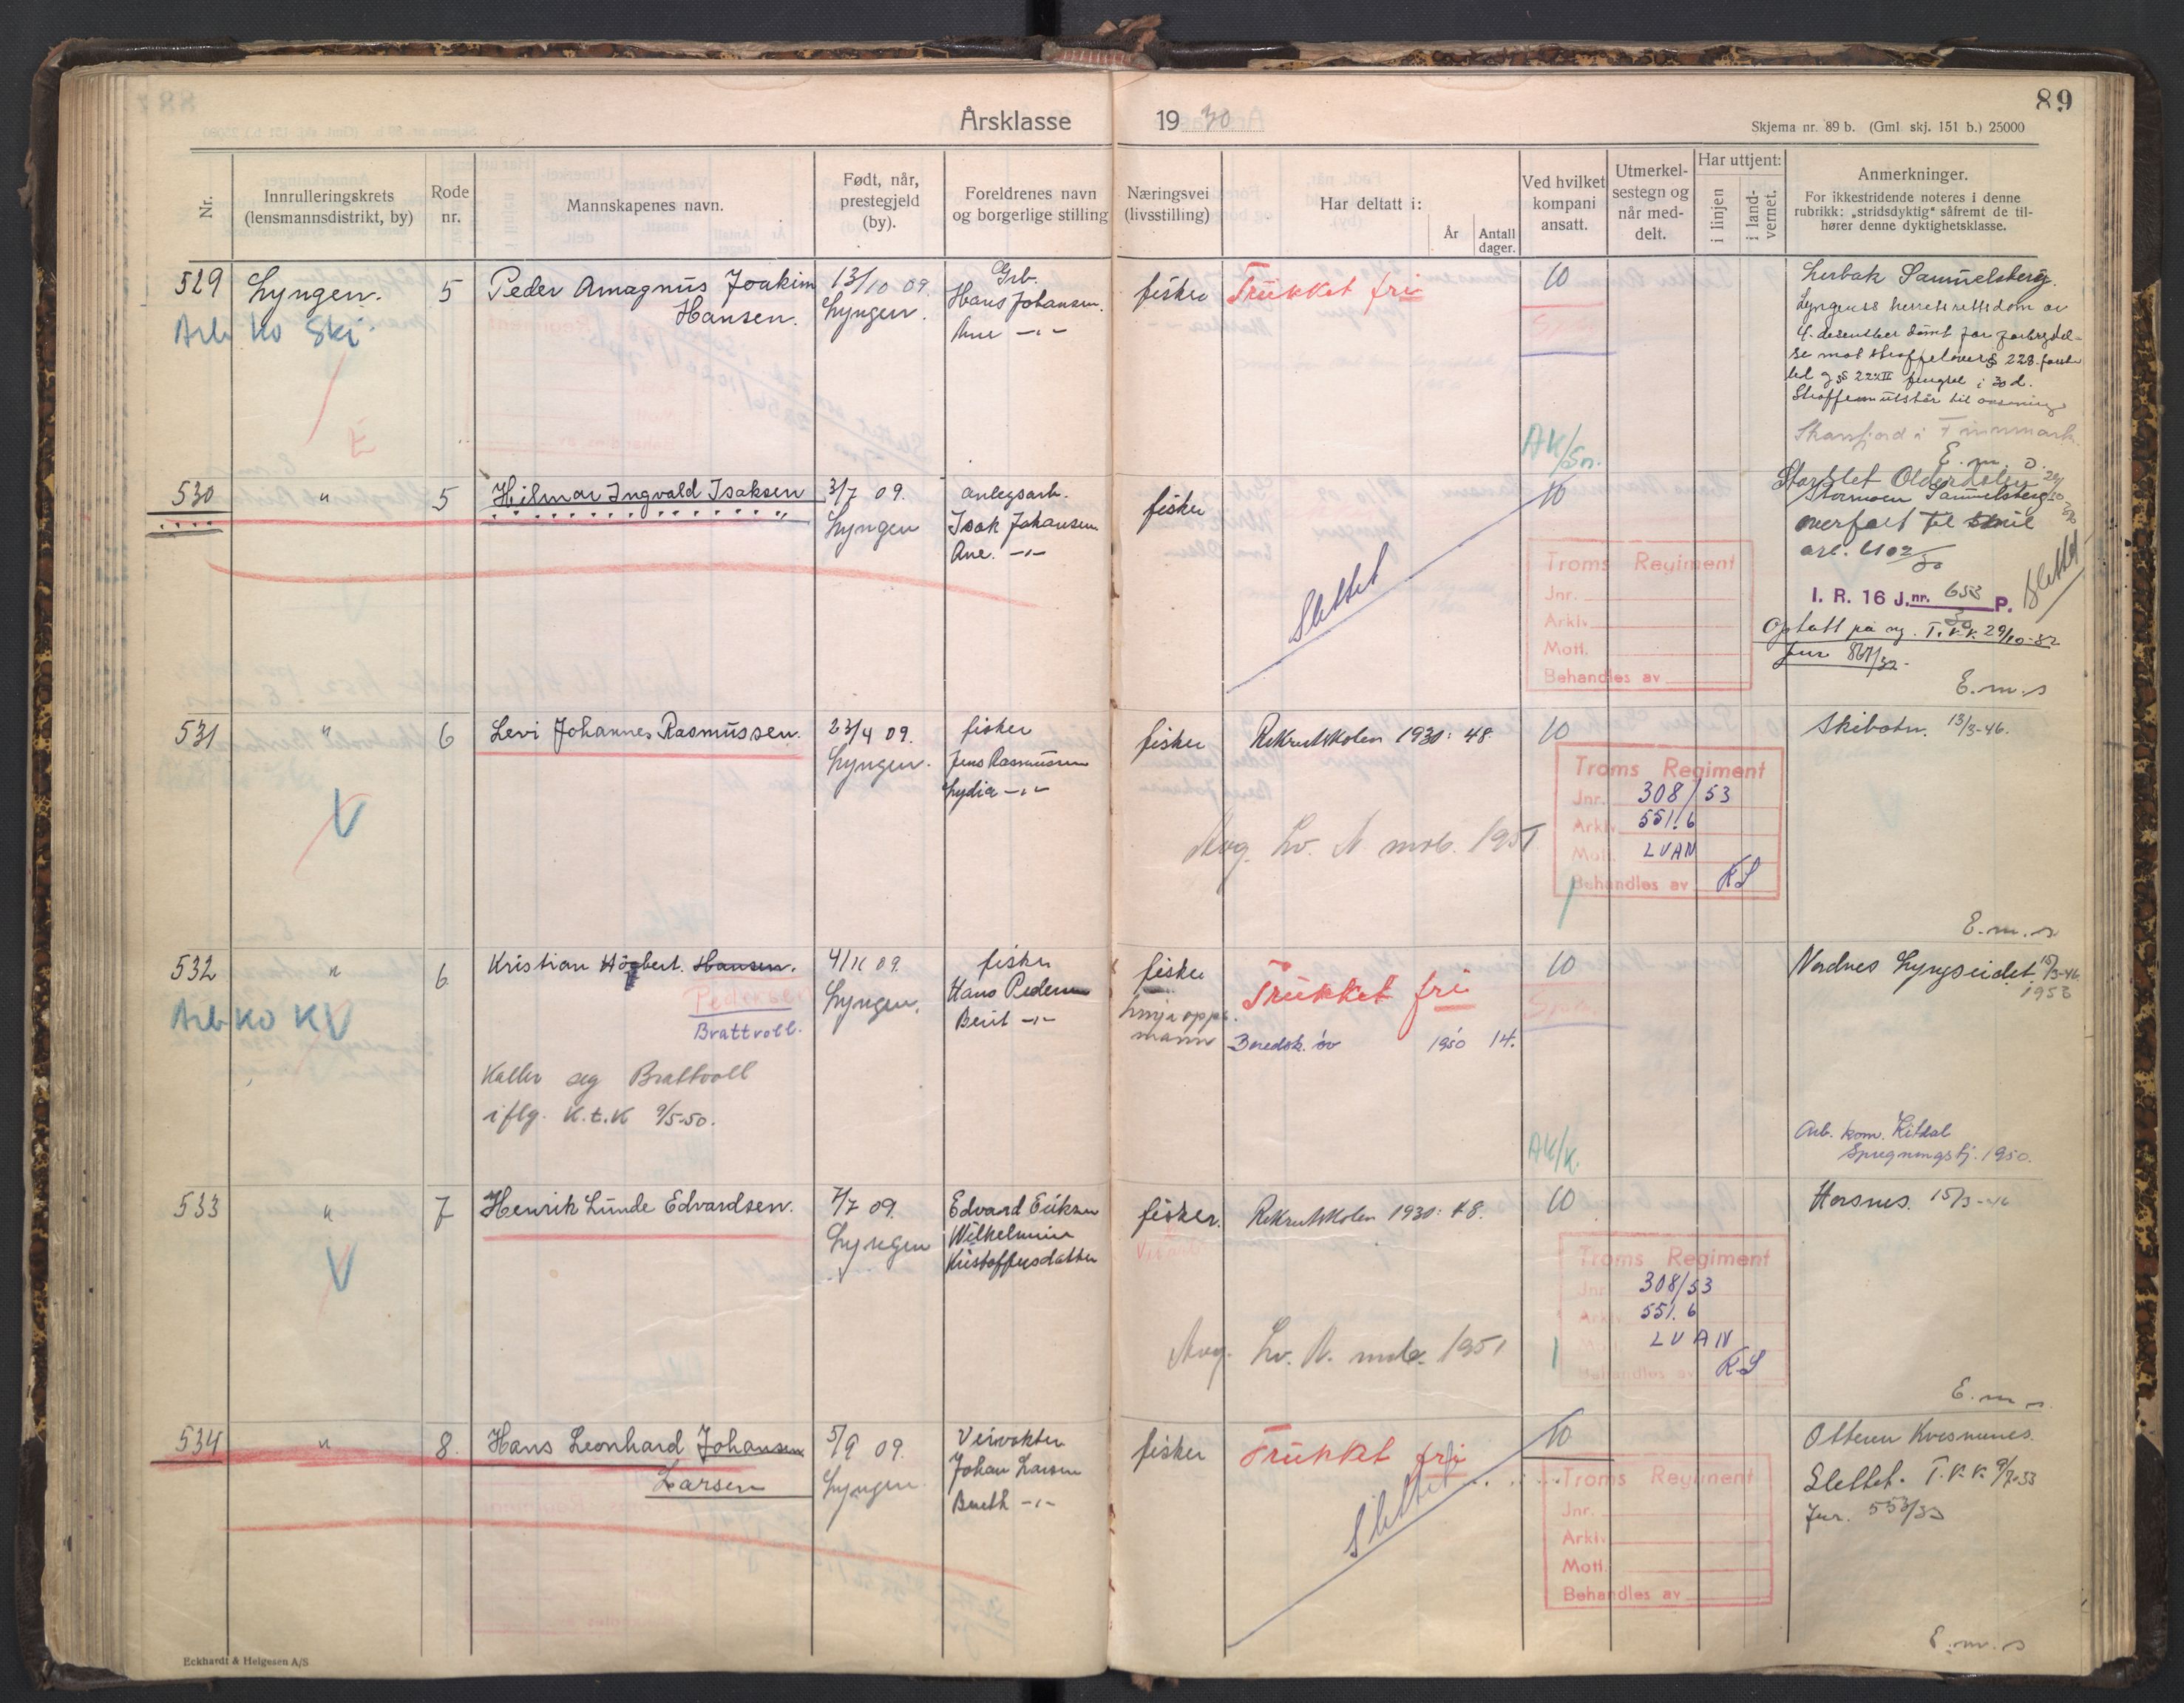 89
Årsklasse 1930
Skjema nr. 89 b. (Gml. skj. 151 b.) 25000
Nr.
Innrulleringskrets
(lensmannsdistrikt, by)
Rode
nr.
Mannskapenes navn.
Født, når,
prestegjeld
(by).
Foreldrenes navn
og borgerlige stilling
Næringsvei
(livsstilling)
Har deltatt i:
År
Antall
dager.
Ved hvilket
kompani
ansatt.
Utmerkel-
sestegn og
når med-
delt.
Har uttjent:
i linjen
i land-
vernet.
Anmerkninger.
For ikkestridende noteres i denne
rubrikk: „stridsdyktig“ såfremt de til-
hører denne dyktighetsklasse.
529
Lyngen.
Arb ko Ski.
E
5
Peder Amagnus Joakim
Hansen.
13/10 09.
Lyngen.
Grb.
Hans Johansen.
Ane -"-
fisker
Trukket fri
10
AK/Sn.
Samuelsberg.
Lyngens herretsrettsdom av
4. desember dømt for forbrydel-
se mot straffelovens § 228 første
led fengsel i 30 d.
Finnmark.
E. m. s.
530
"
5
Hilmar Ingvald Isaksen
3/7 09.
Lyngen
anlegsarb.
Isak Johansen
Ane. -"-
fisker
Slettet
10
Troms Regiment
Jnr.
Arkiv
Mott.
Behandles av
Storslet Olderdalen
Stormoen Samuelsberg
overført til
I. R. 16 J.nr. 653 P.
30
Slettet
Optatt på ny. T.K.K. 29/10-32
Jnr 867/32.
E.m.s
531
"
V
6
Levi Johannes Rasmussen.
23/4 09.
Lyngen.
fisker
Jens Rasmussen
Lydia -"-
fisker
Rekrutskolen 1930: 48.
Avg. Lv. N. mob. 1951
10
Troms Regiment
Jnr. 308/53
Arkiv 551.6
Mott. LVAN
Behandles av KS
Skibotn. 13/3-46.
E.m.s
532
"
Arb ko K V
6
Kristian Høgbert. Hansen.
Pedersen
Brattvoll.
Kaller seg Brattvoll
iflg. K.t.K 9/5-50.
4/11 09.
Lyngen.
fisker
Hans Pedersen
Berit -"-
fisker
Linjeopps.
mann
Trukket fri
Beredsk. øv 1950 14.
10
AK/K.
Nordnes Lyngseidet 15/3-46.
1953
Arb. kom. Kitdal
Spregningstj. 1950.
533
"
V
7
Henrik Lunde Edvardsen.
7/7 09.
Lyngen
Edvard Eriksen
Wilhelmine
Kristoffersdatter
fisker.
Rekrutskolen 1930: 48.
Avg. Lv. N. mob. 1951
10
Troms Regiment
Jnr 308/53
Arkiv 551.6
LVAN
Behandles av KS
Horsnes. 15/3-46
E.m.s.
534
"
8.
Hans Leonhard Johansen
Larsen
5/9 09.
Lyngen.
Veivokter
Johan Larsen
Bereth -"-
fisker
Trukket fri
Slettet
10
Troms Regiment
Jnr.
Arkiv
Mott.
Behandles av
Otteren Kvesmenes.
Slettet. T.K.K. 9/7-33
Jnr. 553/33
E.m.s
Eckhardt & Helgesen A/S